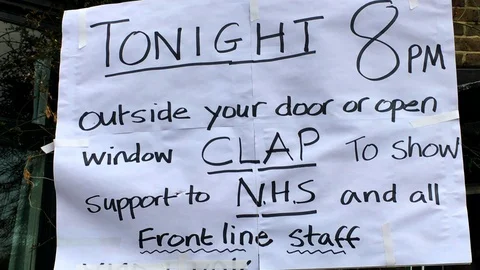 TONIGHT 8PM
outside your door or open
window CLAP To show
support to N.HS and all
Front line staff